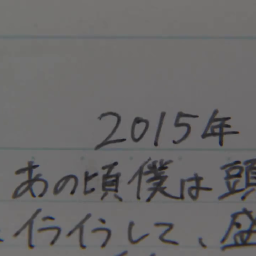 2015年
あの頃僕は頭
イライラして、盛